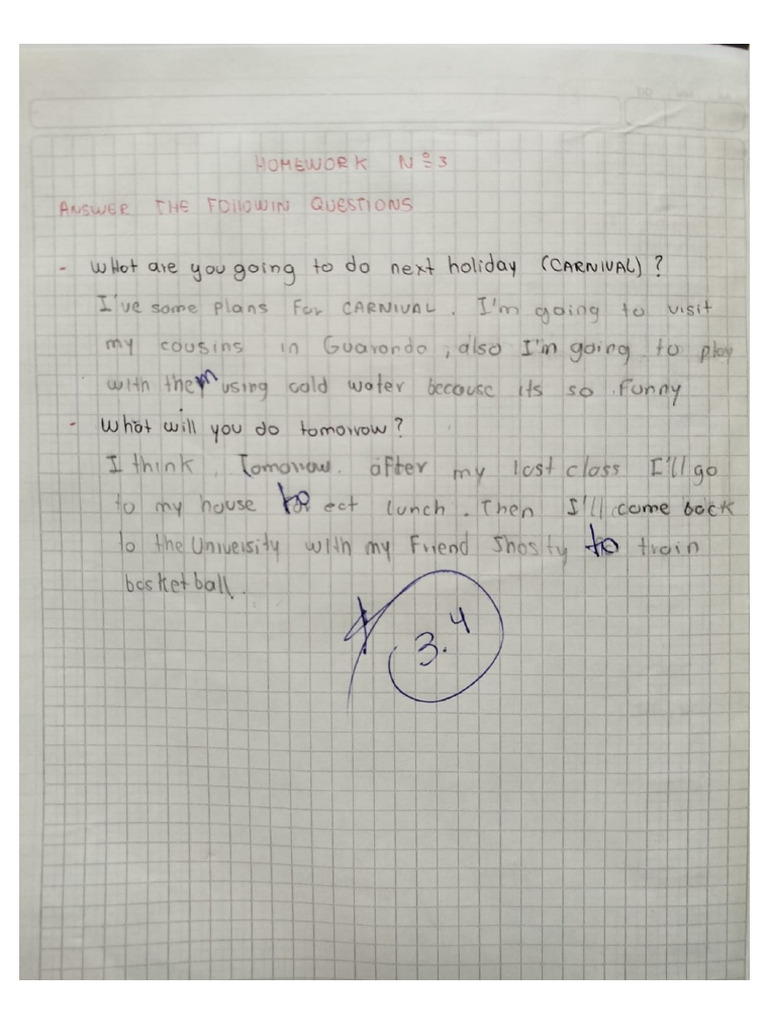 HOMEWORK Nº3
ANSWER THE FOllOWIN QUESTIONS
- What are you going to do next holiday (CARNIVAL)?
I've some plans for CARNIVAL. I'm going to visit
my cousins in Guaranda, also I'm going to play
with them using cold water because its so funny
- What will you do tomorrow?
I think, Tomorrow. after my last class I'll go
to my house to eat lunch. Then I'll come back
to the University with my Friend Shosty to train
basketball.
3.4